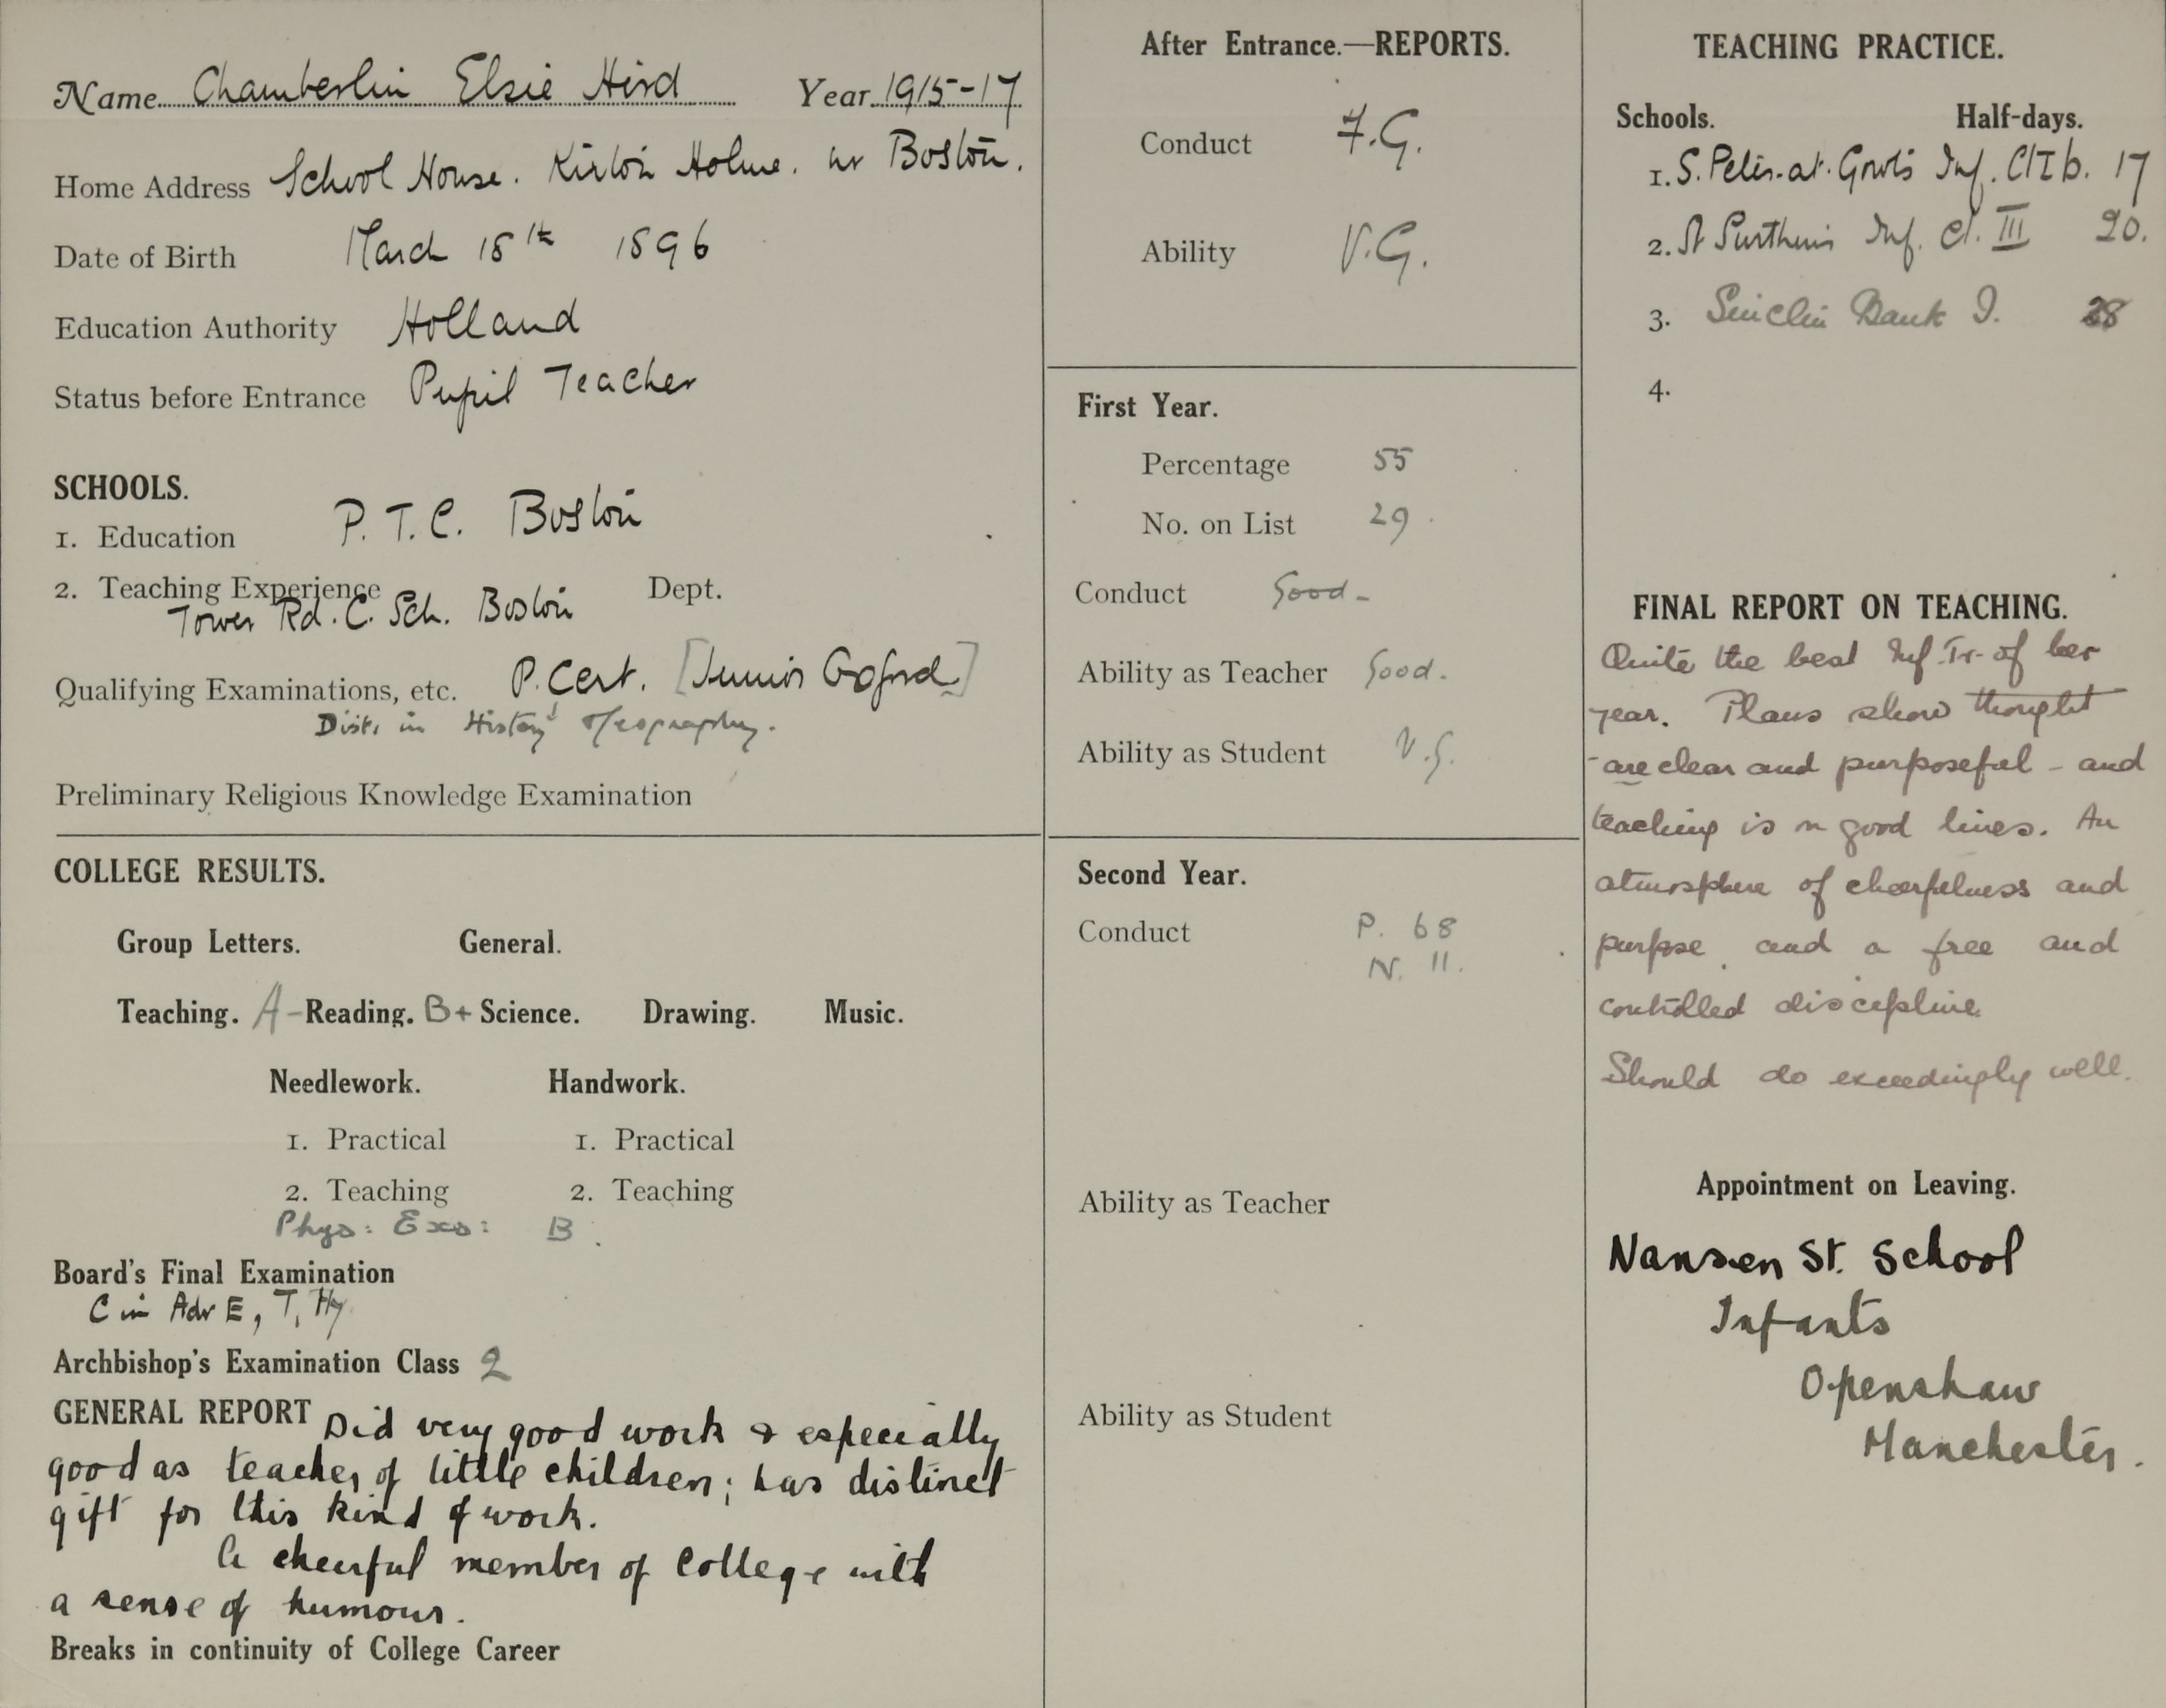 Name Chamberlin Elsie Hird Year 1915-17
Home Address School House. Kirton Holme. nr Boston.
Date of Birth March 18th 1896
Education Authority Holland
Status before Entrance Pupil Teacher
SCHOOLS.
1. Education P. T. C. Boston
2. Teaching Experience Dept.
Tower Rd. C. Sch. Boston
Qualifying Examinations, etc. P. Cert. [Junior Oxford]
Dist. in History & Geography.
Preliminary Religious Knowledge Examination
COLLEGE RESULTS.
Group Letters. General.
Teaching. A- Reading. B+ Science. Drawing. Music.
Needlework. Handwork.
1. Practical 1. Practical
2. Teaching 2. Teaching
Phys: Exs: B.
Board's Final Examination
C in Adv E, T, Hy
Archbishop's Examination Class 2
GENERAL REPORT Did very good work & especially
good as teacher of little children; has distinct
gift for this kind of work.
A cheerful member of College with
a sense of humour.
Breaks in continuity of College Career
After Entrance.—REPORTS.
Conduct F.G.
Ability V.G.
First Year.
Percentage 55
No. on List 29.
Conduct Good-
Ability as Teacher Good.
Ability as Student V.G.
Second Year.
Conduct P. 68
N. 11.
Ability as Teacher
Ability as Student
TEACHING PRACTICE.
Schools. Half-days.
1. S. Peter-at-Gowts Inf. Cl I b. 17
2. St Swithins Inf. Cl. III 20.
3. Sincil Bank I. 28
4.
FINAL REPORT ON TEACHING.
Quite the best Inf. Tr. of her
year. Plans show thought
- are clear and purposeful - and
teaching is on good lines. An
atmosphere of cheerfulness and
purpose, and a free and
controlled discipline.
Should do exceedingly well.
Appointment on Leaving.
Nansen St. School
Infants
Openshaw
Manchester.